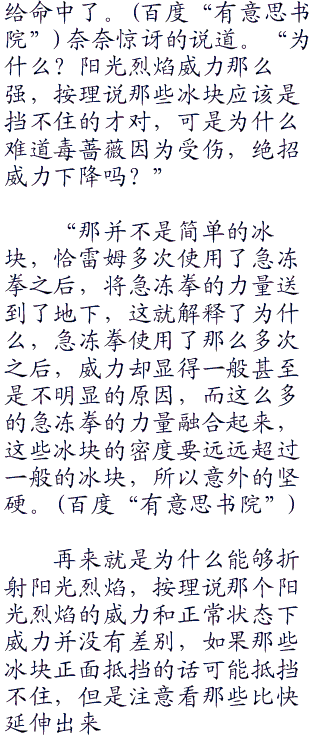 给命中了。(百度“有意思书
院”)奈奈惊讶的说道。“为
什么？阳光烈焰威力那么
强，按理说那些冰块应该是
挡不住的才对，可是为什么
难道毒蔷薇因为受伤，绝招
威力下降吗？”
“那并不是简单的冰
块，恰雷姆多次使用了急冻
拳之后，将急冻拳的力量送
到了地下，这就解释了为什
么，急冻拳使用了那么多次
之后，威力却显得一般甚至
是不明显的原因，而这么多
的急冻拳的力量融合起来，
这些冰块的密度要远远超过
一般的冰块，所以意外的坚
硬。(百度“有意思书院”)
再来就是为什么能够折
射阳光烈焰，按理说那个阳
光烈焰的威力和正常状态下
威力并没有差别，如果那些
冰块正面抵挡的话可能抵挡
不住，但是注意看那些比快
延伸出来